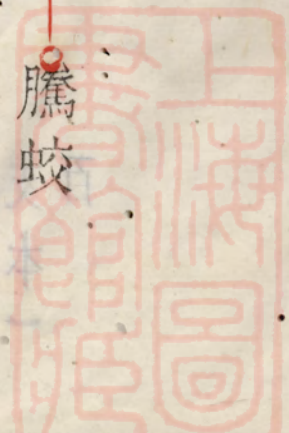 騰蛟
上海圖
書館